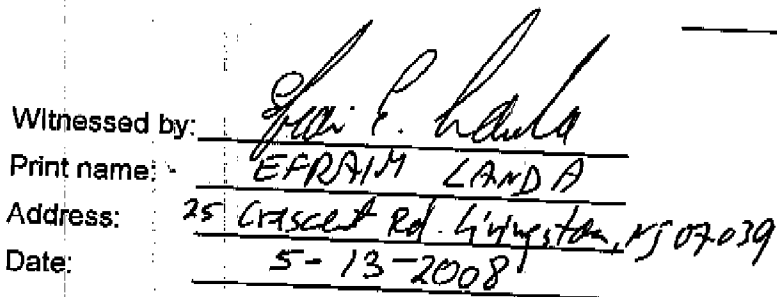 Witnessed by:
Print name: EFRAIM LANDA
Address: 25 Crescent Rd. Livingston, NJ 07039
Date: 5-13-2008